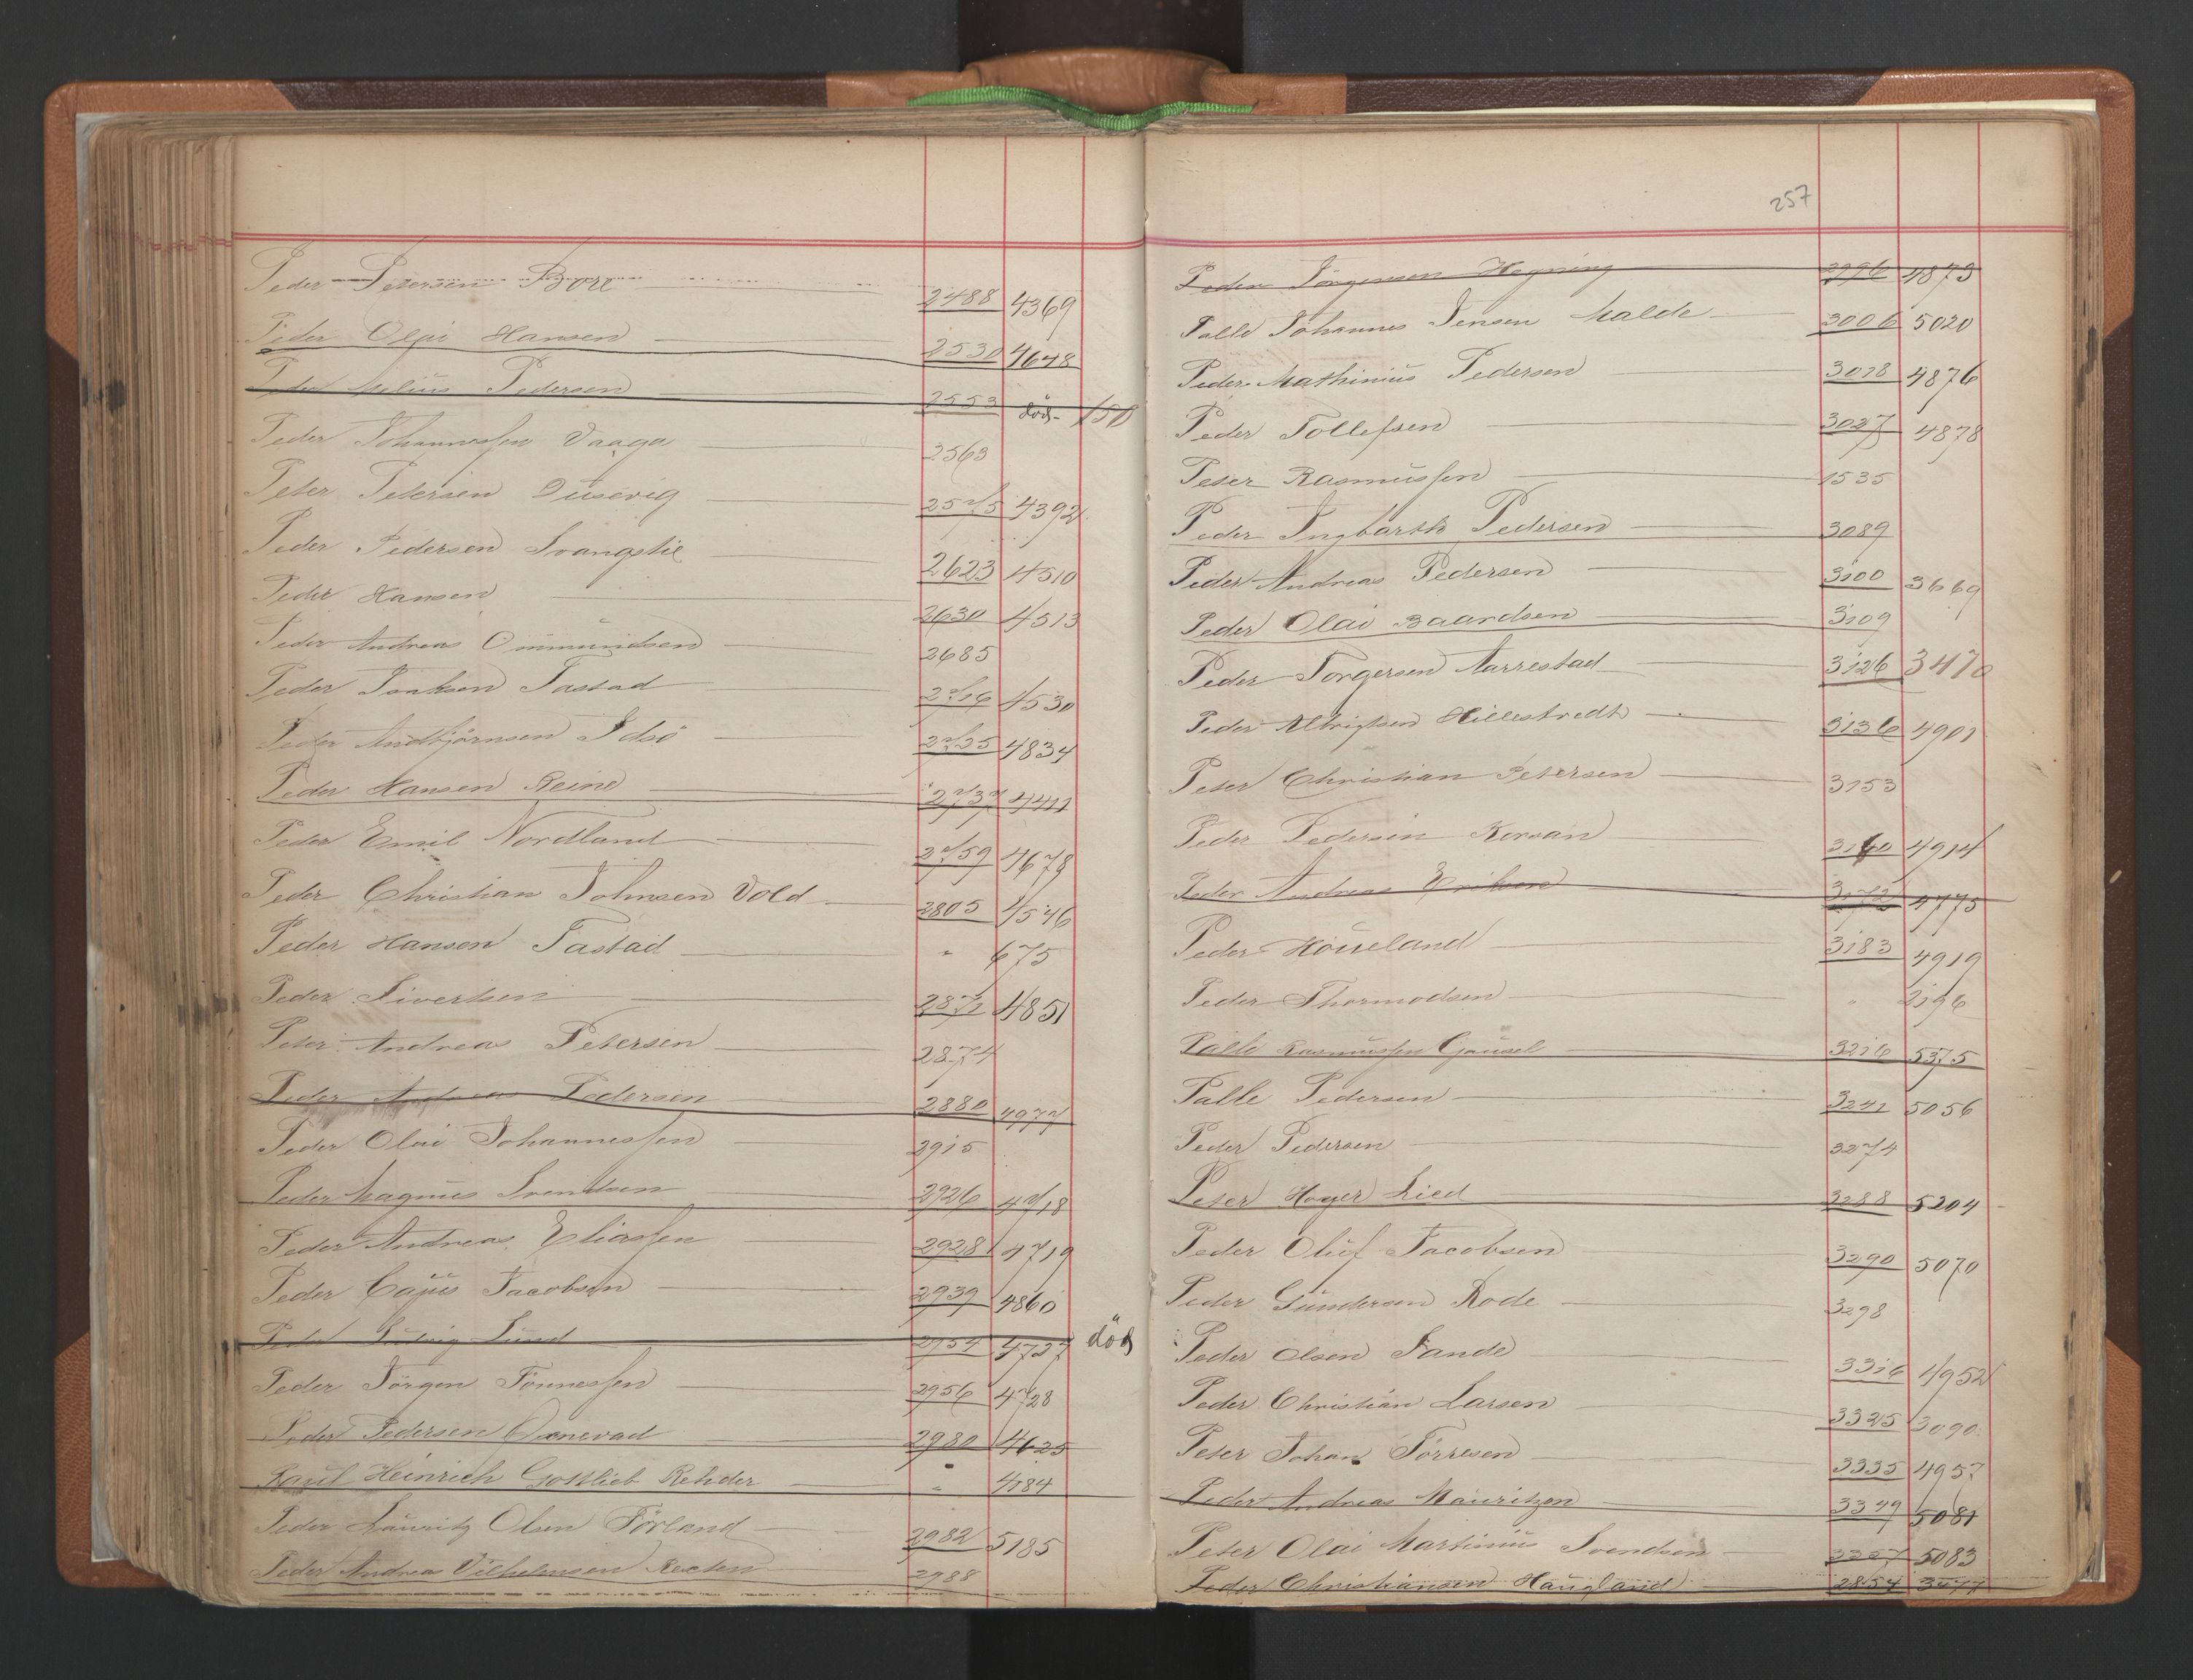 Peder Petersen Bore 2488 4369
Peder Olai Hansen 2530 4648
Peder Melius Pedersen 2553 död
Peder Johannessen Vaaga 2563
Peter Petersen Dusevig 2575 4392
Peder Pedersen 2623 4510
Peder Hansen 2630 4513
Peder Andreas Ommundsen 2685
Peder Isaksen Tastad 2716 4530
Peder Andbjörnsen Idsö 2725 4834
Peder Hansen Reine 2737 4411
Peder Emil Nordland 2759 4678
Peder Christian Johnsen Vold 2805 4546
Peder Hansen Tastad " 675
Peder Sivertsen 2871 4851
Peter Andreas Petersen 2874
Peder Andreas Pedersen 2880 4977
Peder Olai Johannessen 2915
Peder Magnus Svendsen 2926 4718
Peder Andreas Eliassen 2928 4719
Peder Cajus Jacobsen 2939 4860
Peder Ludvig Lund 2954 4727 död
Peder Jörgen Tönnessen 2956 4728
Peder Pedersen 2980 4625
Paul Heinrich Gottlieb Rehder " 4184
Peder Lauritz Olsen Förland 2982 5185
Peder Andreas Vilhelmsen 2988
257
Peder Jörgensen Hegning 2996 4873
Palle Johannes Jensen Malde 3006 5020
Peder Mathinius Pedersen 3018 4876
Peder Tollefsen 3027 4878
Peter Rasmussen 1535
Peder Ingbarth Pedersen 3089
Peder Andreas Pedersen 3100 3669
Peder Olai Baardsen 3109
Peder Torgersen Aarrestad 3126 3470
Peder Albrigtsen Hillestredt 3136 4901
Peter Christian Petersen 3153
Peder Pedersen 3160 4914
Peder Andreas Eriksen 3172 4775
Peder Höieland 3183 4919
Peder Thormodsen " 2196
Palle Rasmussen Gausel 3216 5375
Palle Pedersen 3241 5056
Peder Pedersen 3274
Peter Hoyer Lied 3288 5204
Peder Oluf Jacobsen 3290 5070
Peder Gundersen Rode 3298
Peder Olsen Sande 3316 4952
Peder Christian Larsen 3325 3090
Peter Johan Törresen 3335 4957
Peder Andreas Mauritzen 3349 5081
Peter Olai Martinius Svendsen 3357 5083
Peder Christiansen Haugland 2854 3477